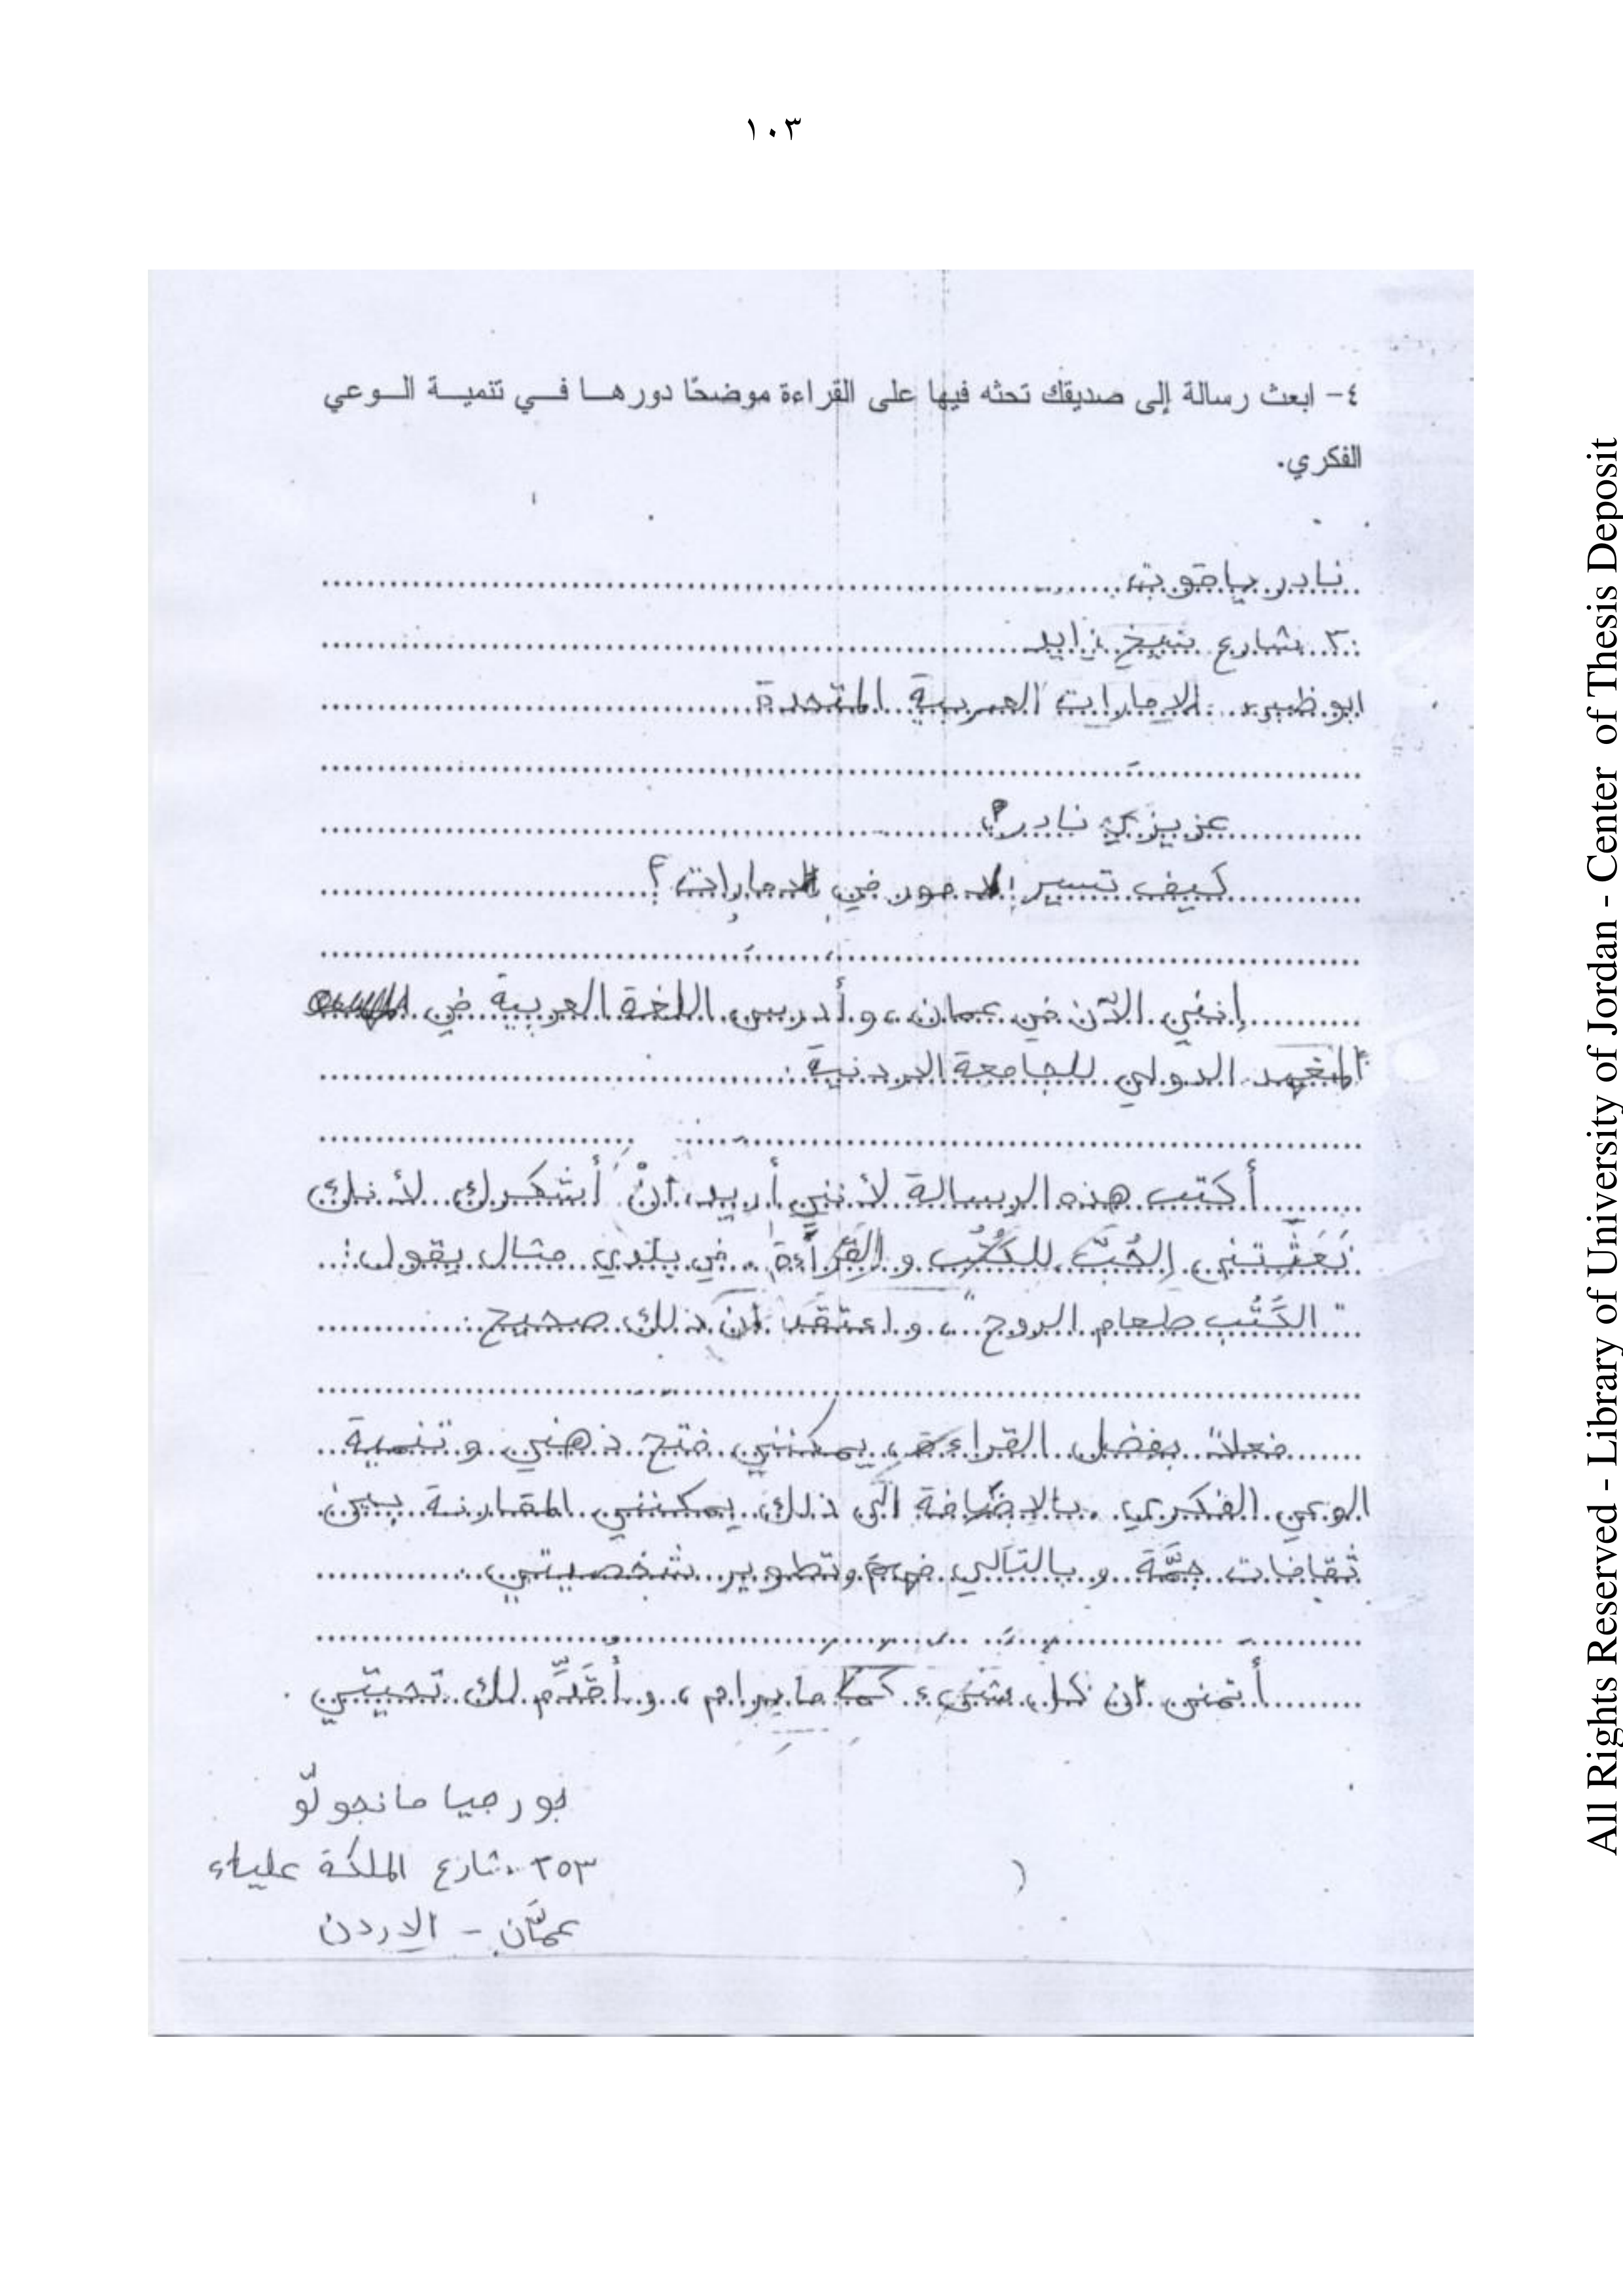 ١٠٣
٤- ابعث رسالة إلى صديقك تحثه فيها على القراءة موضحًا دورها في تنمية الوعي
الفكري.
نادر ياقوت
٣٠ شارع شيخ زايد
ابو ظبي، الامارات العربية المتحدة
عزيزي نادر،
كيف تسير الامور في الامارات؟
إنني الآن في عمان، و أدرس اللغة العربية في
المعهد الدولي للجامعة الاردنية.
أكتب هذه الرسالة لأنني أريد أنْ أشكرك لأنك
بَعَثْتَني الحُبّ للكُتُب و القِرَاءة. في بلدي مثال يقول:
"الكُتُب طعام الروح"، و اعتقد أنّ ذلك صحيح.
فعلاً بفضل القراءة، يمكنني فتح ذهني و تنمية
الوعي الفكري. بالإضافة الى ذلك، يمكنني المقارنة بين
ثقافات جمَّة و بالتالي فهم و تطوير شخصيتي.
أتمنى ان كل شيء كما ما يرام، و أقَدِّم لك تحيتي.
نورميا مانجولّو
٢٥٣ شارع الملكة علياء
عمّان - الاردن
All Rights Reserved - Library of University of Jordan - Center of Thesis Deposit